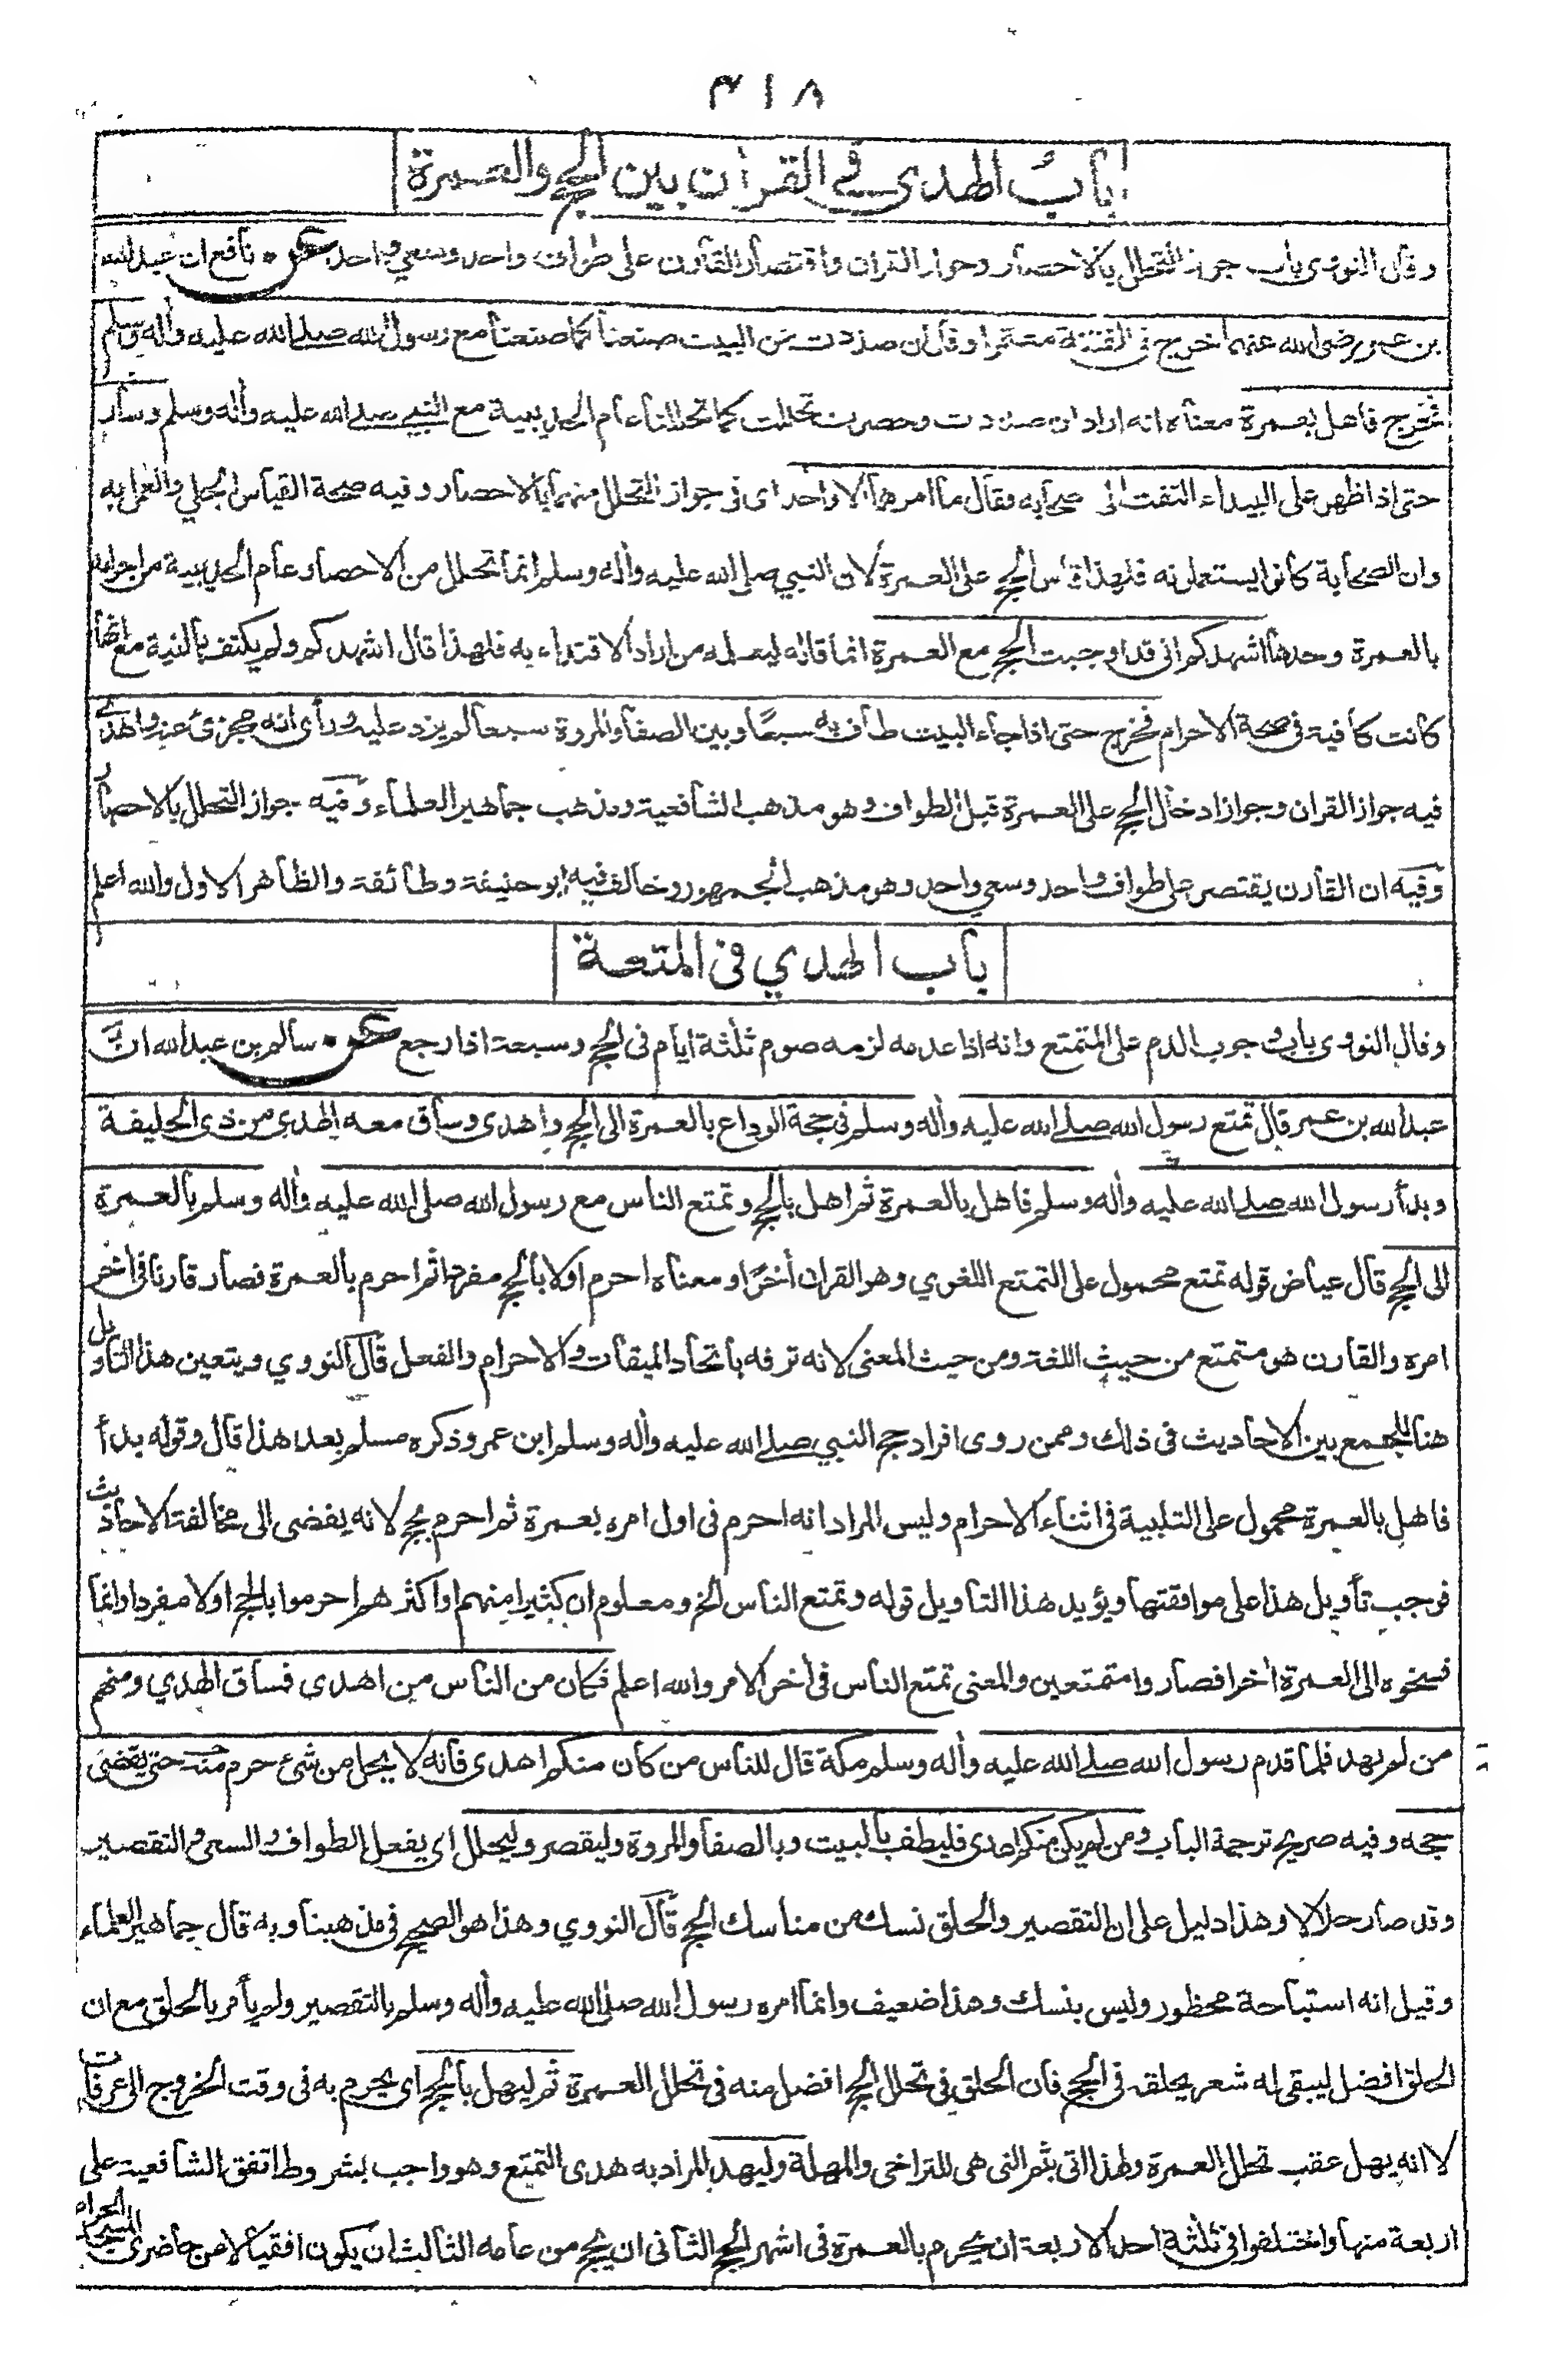 ٤١٨
باب الهدى في القران بين الحج والعمرة
وقال النووى باب جواز التحلل بالاحصار وجواز القران واقتصار القارن على طواف واحد وسعي واحد عن نافع ان عبدالله
بن عمر رضى الله عنهما خرج فى الفتنة معتمرا وقال ان صددت عن البيت صنعنا كما صنعنا مع رسول الله صلى الله عليه وأله وسلم
فخرج فاهل بعمرة معناه انه اراد ان صددت وحصرت تحللت كما تحللنا عام الحديبية مع النبي صلى الله عليه وأله وسلم وسار
حتى اذا ظهر على البيداء التفت الى صحابه وقال ما امرهما الا واحد اى فى جواز التحلل منهما بالاحصار وفيه صحة القياس الجلي والعمل به
وان الصحابة كانوا يستعملونه فلهذا قاس الحج على العمرة لان النبي صلى الله عليه وأله وسلم انما تحلل من الاحصار عام الحديبية من احرامه
بالعمرة وحدها اشهدكم انى قد اوجبت الحج مع العمرة انما قاله ليعلمه من اراد الاقتداء به فلهذا قال اشهدكم ولم يكتف بالنية مع انها
كانت كافية فى صحة الاحرام فخرج حتى اذا جاء البيت طاف به سبعًا وبين الصفا والمروة سبعا لم يزد عليه ورأى انه مجزئ عنه واهدى
فيه جواز القران وجواز ادخال الحج على العمرة قبل الطواف وهو مذهب الشافعية ومذهب جماهير العلماء وفيه جواز التحلل بالاحصار
وفيه ان القارن يقتصر على طواف واحد وسعي واحد وهو مذهب الجمهور وخالف فيه ابو حنيفة وطائفة والظاهر الاول والله اعلم
باب الهدي فى المتعة
وقال النووى باب وجوب الدم على المتمتع وانه اذا عدمه لزمه صوم ثلثة ايام فى الحج وسبعة اذا رجع عن سالم بن عبدالله ان
عبدالله بن عمر قال تمتع رسول الله صلى الله عليه وأله وسلم فى حجة الوداع بالعمرة الى الحج واهدى وساق معه الهدي من ذى الحليفة
وبدأ رسول الله صلى الله عليه وأله وسلم فاهل بالعمرة ثم اهل بالحج وتمتع الناس مع رسول الله صلى الله عليه وأله وسلم بالعمرة
الى الحج قال عياض قوله تمتع محمول على التمتع اللغوي وهو القران أخرًا ومعناه احرم اولا بالحج مفردا ثم احرم بالعمرة فصار قارنا فى أخر
امره والقارن هو متمتع من حيث اللغة ومن حيث المعنى لانه ترفه باتحاد الميقات والاحرام والفعل قال النووي ويتعين هذا التاويل
هنا للجمع بين الاحاديث فى ذلك وممن روى افراد حج النبي صلى الله عليه وأله وسلم ابن عمر وذكره مسلم بعد هذا قال وقوله بدأ
فاهل بالعمرة محمول على التلبية فى اثناء الاحرام وليس المراد انه احرم فى اول امره بعمرة ثم احرم بحج لانه يفضى الى مخالفة الاحاديث
فوجب تأويل هذا على موافقتها ويؤيد هذا التاويل قوله وتمتع الناس الخ ومعلوم ان كثيرا منهم او اكثرهم احرموا بالحج اولا مفردا وانما
فسخوه الى العمرة أخرا فصاروا متمتعين والمعنى تمتع الناس فى أخر الامر والله اعلم فكان من الناس من اهدى فساق الهدي ومنهم
من لم يهد فلما قدم رسول الله صلى الله عليه وأله وسلم مكة قال للناس من كان منكم اهدى فانه لا يحل من شئ حرم منه حتى يقضى
حجه وفيه صريح ترجمة الباب ومن لم يكن منكم اهدى فليطف بالبيت وبالصفا والمروة وليقصر وليحلل اى يفعل الطواف والسعى والتقصير
وقد صار حلالا وهذا دليل على ان التقصير والحلق نسك من مناسك الحج قال النووي وهذا هو الصحيح فى مذهبنا وبه قال جماهير العلماء
وقيل انه استباحة محظور وليس بنسك وهذا ضعيف وانما امره رسول الله صلى الله عليه وأله وسلم بالتقصير ولم يأمر بالحلق مع ان
الحلق افضل ليبقى له شعر يحلقه فى الحج فان الحلق فى تحلل الحج افضل منه فى تحلل العمرة ثم ليهل بالحج اى يحرم به فى وقت الخروج الى عرفات
لا انه يهل عقب تحلل العمرة ولهذا اتى بثم التى هى للتراخى والمهلة وليهد المراد به هدى التمتع وهو واجب بشروط اتفق الشافعية على
اربعة منها واختلفوا فى ثلثة احد الاربعة ان يحرم بالعمرة فى اشهر الحج الثانى ان يحج من عامه الثالث ان يكون افقيا لا من حاضرى المسجد الحرام